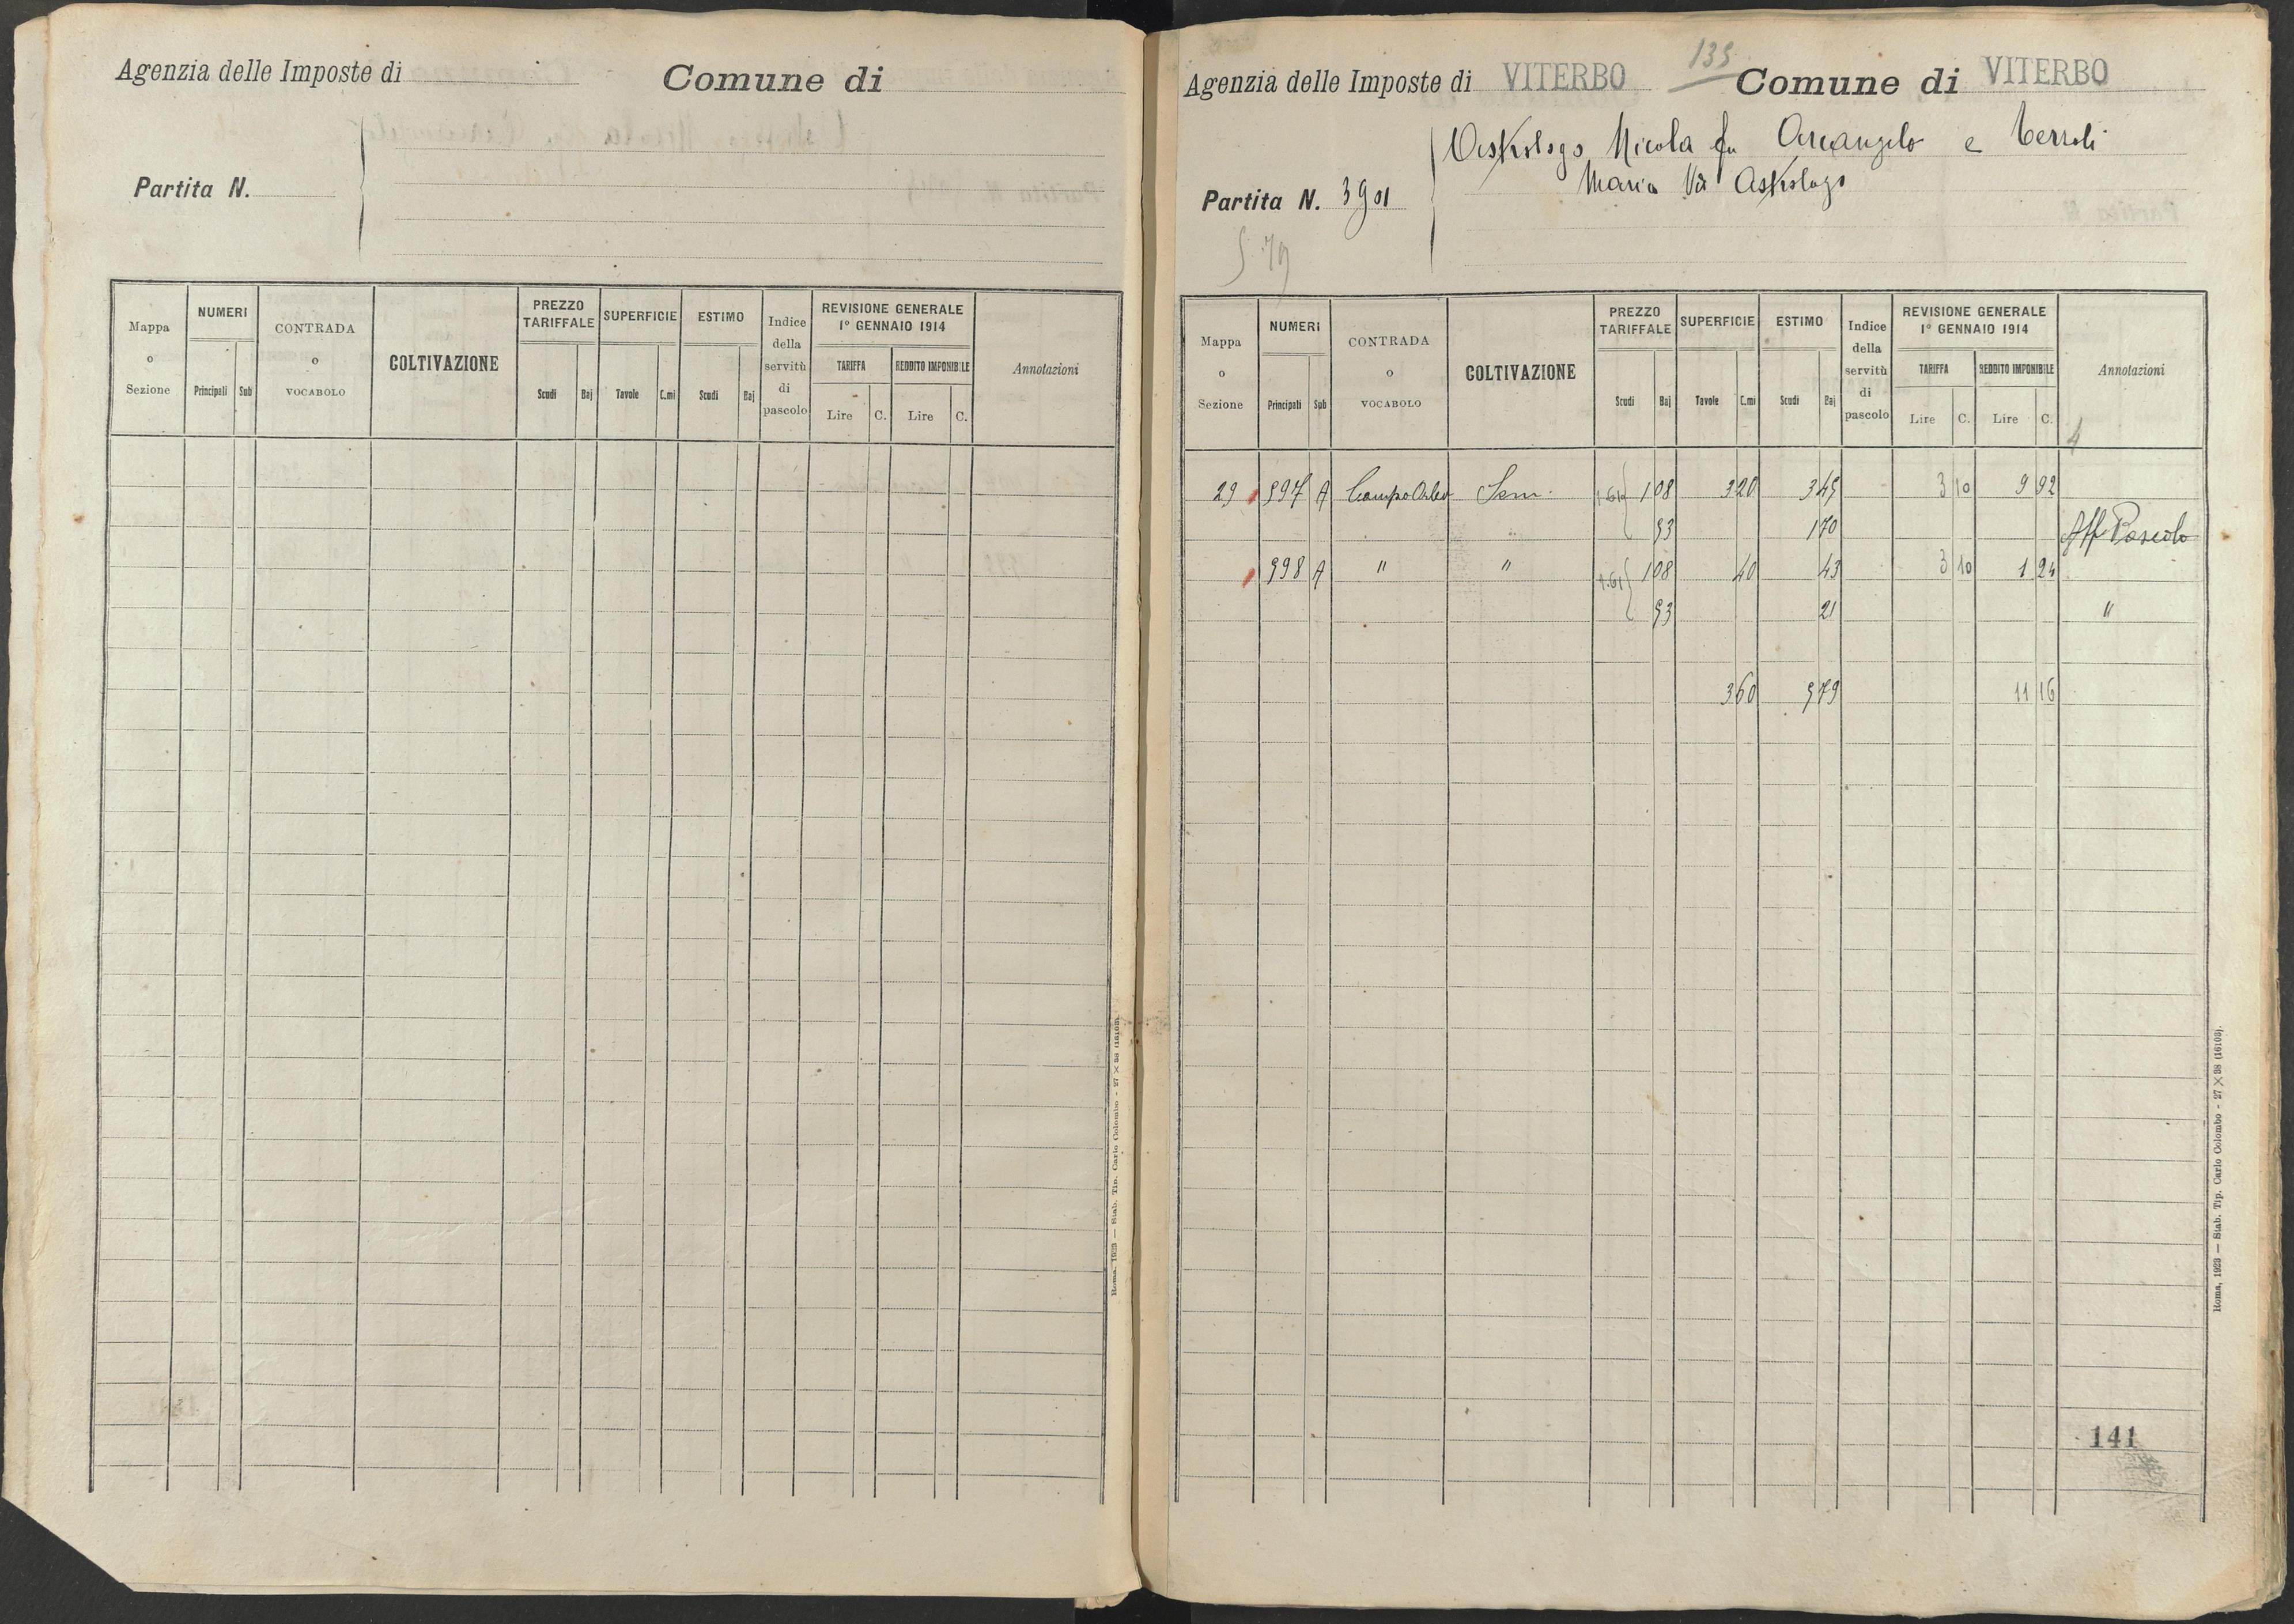 Agenzia delle Imposte di
Comune di
Partita N.
Mappa o Sezione
NUMERI
Principali Sub
CONTRADA o VOCABOLO
COLTIVAZIONE
PREZZO TARIFFALE
Scudi Baj
SUPERFICIE
Tavole C.mi
ESTIMO
Scudi Baj
Indice della servitù di pascolo
REVISIONE GENERALE
1° GENNAIO 1914
TARIFFA
Lire C.
REDDITO IMPONIBILE
Lire C.
Annotazioni
Roma, 1923 — Stab. Tip. Carlo Colombo - 27 X 38 (16103).
135
Agenzia delle Imposte di VITERBO Comune di VITERBO
Nicola fu Arcangelo e
Maria
Partita N. 3901
579
Mappa o Sezione
NUMERI
Principali Sub
CONTRADA o VOCABOLO
COLTIVAZIONE
PREZZO TARIFFALE
Scudi Baj
SUPERFICIE
Tavole C.mi
ESTIMO
Scudi Baj
Indice della servitù di pascolo
REVISIONE GENERALE
1° GENNAIO 1914
TARIFFA
Lire C.
REDDITO IMPONIBILE
Lire C.
Annotazioni
4
29 997 A Sem. 1 08 3 20 3 45 3 10 9 92
53 1 70 Aff Pascolo
998 A " " 1 08 40 43 3 10 1 24
53 21 "
3 60 5 79 11 16
141
Roma, 1923 — Stab. Tip. Carlo Colombo - 27 X 38 (16103).